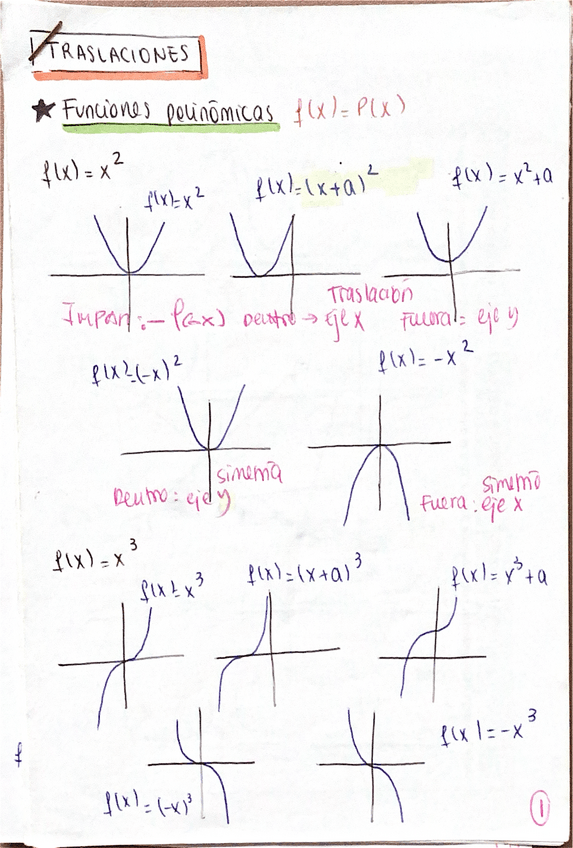 TRASLACIONES
★ Funciones polinómicas f(x)=P(x)
f(x)=x²
f(x)=x² f(x)=(x+a)² f(x)=x²+a
Impar: -f(-x) Dentro → eje x Traslación Fuera = eje y
f(x)=(-x)² f(x)=-x²
Dentro: eje y simetría Fuera: eje x
f(x)=x³
f(x)=x³ f(x)=(x+a)³ f(x)=x³+a
f
f(x)=(-x)³ f(x)=-x³
1